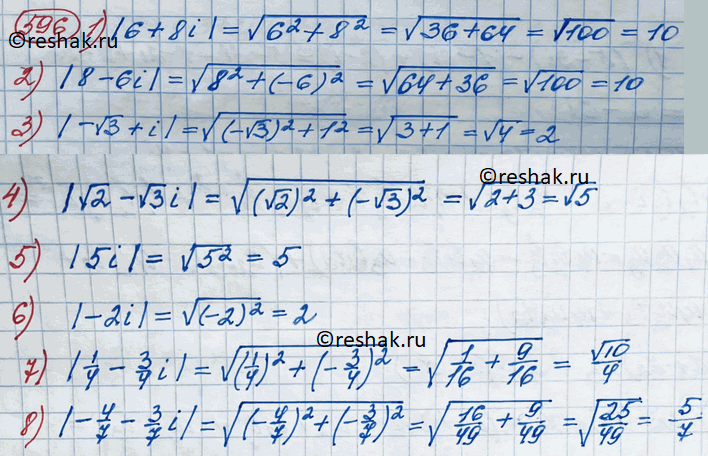 596 1) |6 + 8i| = √(6² + 8²) = √(36 + 64) = √100 = 10
2) |8 - 6i| = √(8² + (-6)²) = √(64 + 36) = √100 = 10
3) |-√3 + i| = √((-√3)² + 1²) = √(3 + 1) = √4 = 2
©reshak.ru
4) |√2 - √3i| = √((√2)² + (-√3)²) = √(2 + 3) = √5
5) |5i| = √(5²) = 5
6) |-2i| = √((-2)²) = 2
©reshak.ru
7) |1/4 - 3/4i| = √((1/4)² + (-3/4)²) = √(1/16 + 9/16) = √10/4
8) |-4/7 - 3/7i| = √((-4/7)² + (-3/7)²) = √(16/49 + 9/49) = √(25/49) = 5/7